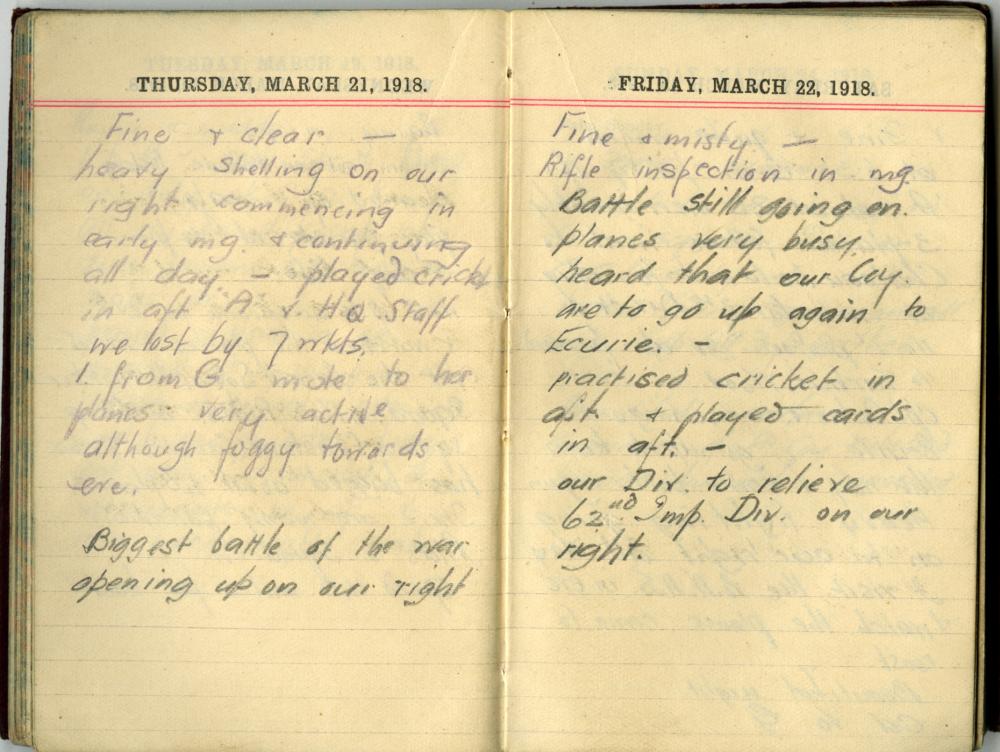 THURSDAY, MARCH 21, 1918.
Fine & clear —
heavy shelling on our
right commencing in
early mg. & continuing
all day. - played cricket
in aft A v. HQ Staff
we lost by 7 wkts.
1 from G. wrote to her
planes very active
although foggy towards
eve.
Biggest battle of the war
opening up on our right
FRIDAY, MARCH 22, 1918.
Fine & misty —
Rifle inspection in mg.
Battle still going on.
planes very busy.
heard that our Coy.
are to go up again to
Ecurie. -
practised cricket in
aft. & played cards
in aft. -
our Div. to relieve
62nd Imp. Div. on our
right.